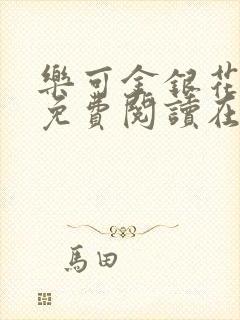 樂可金銀花
免費閱讀在
馬田